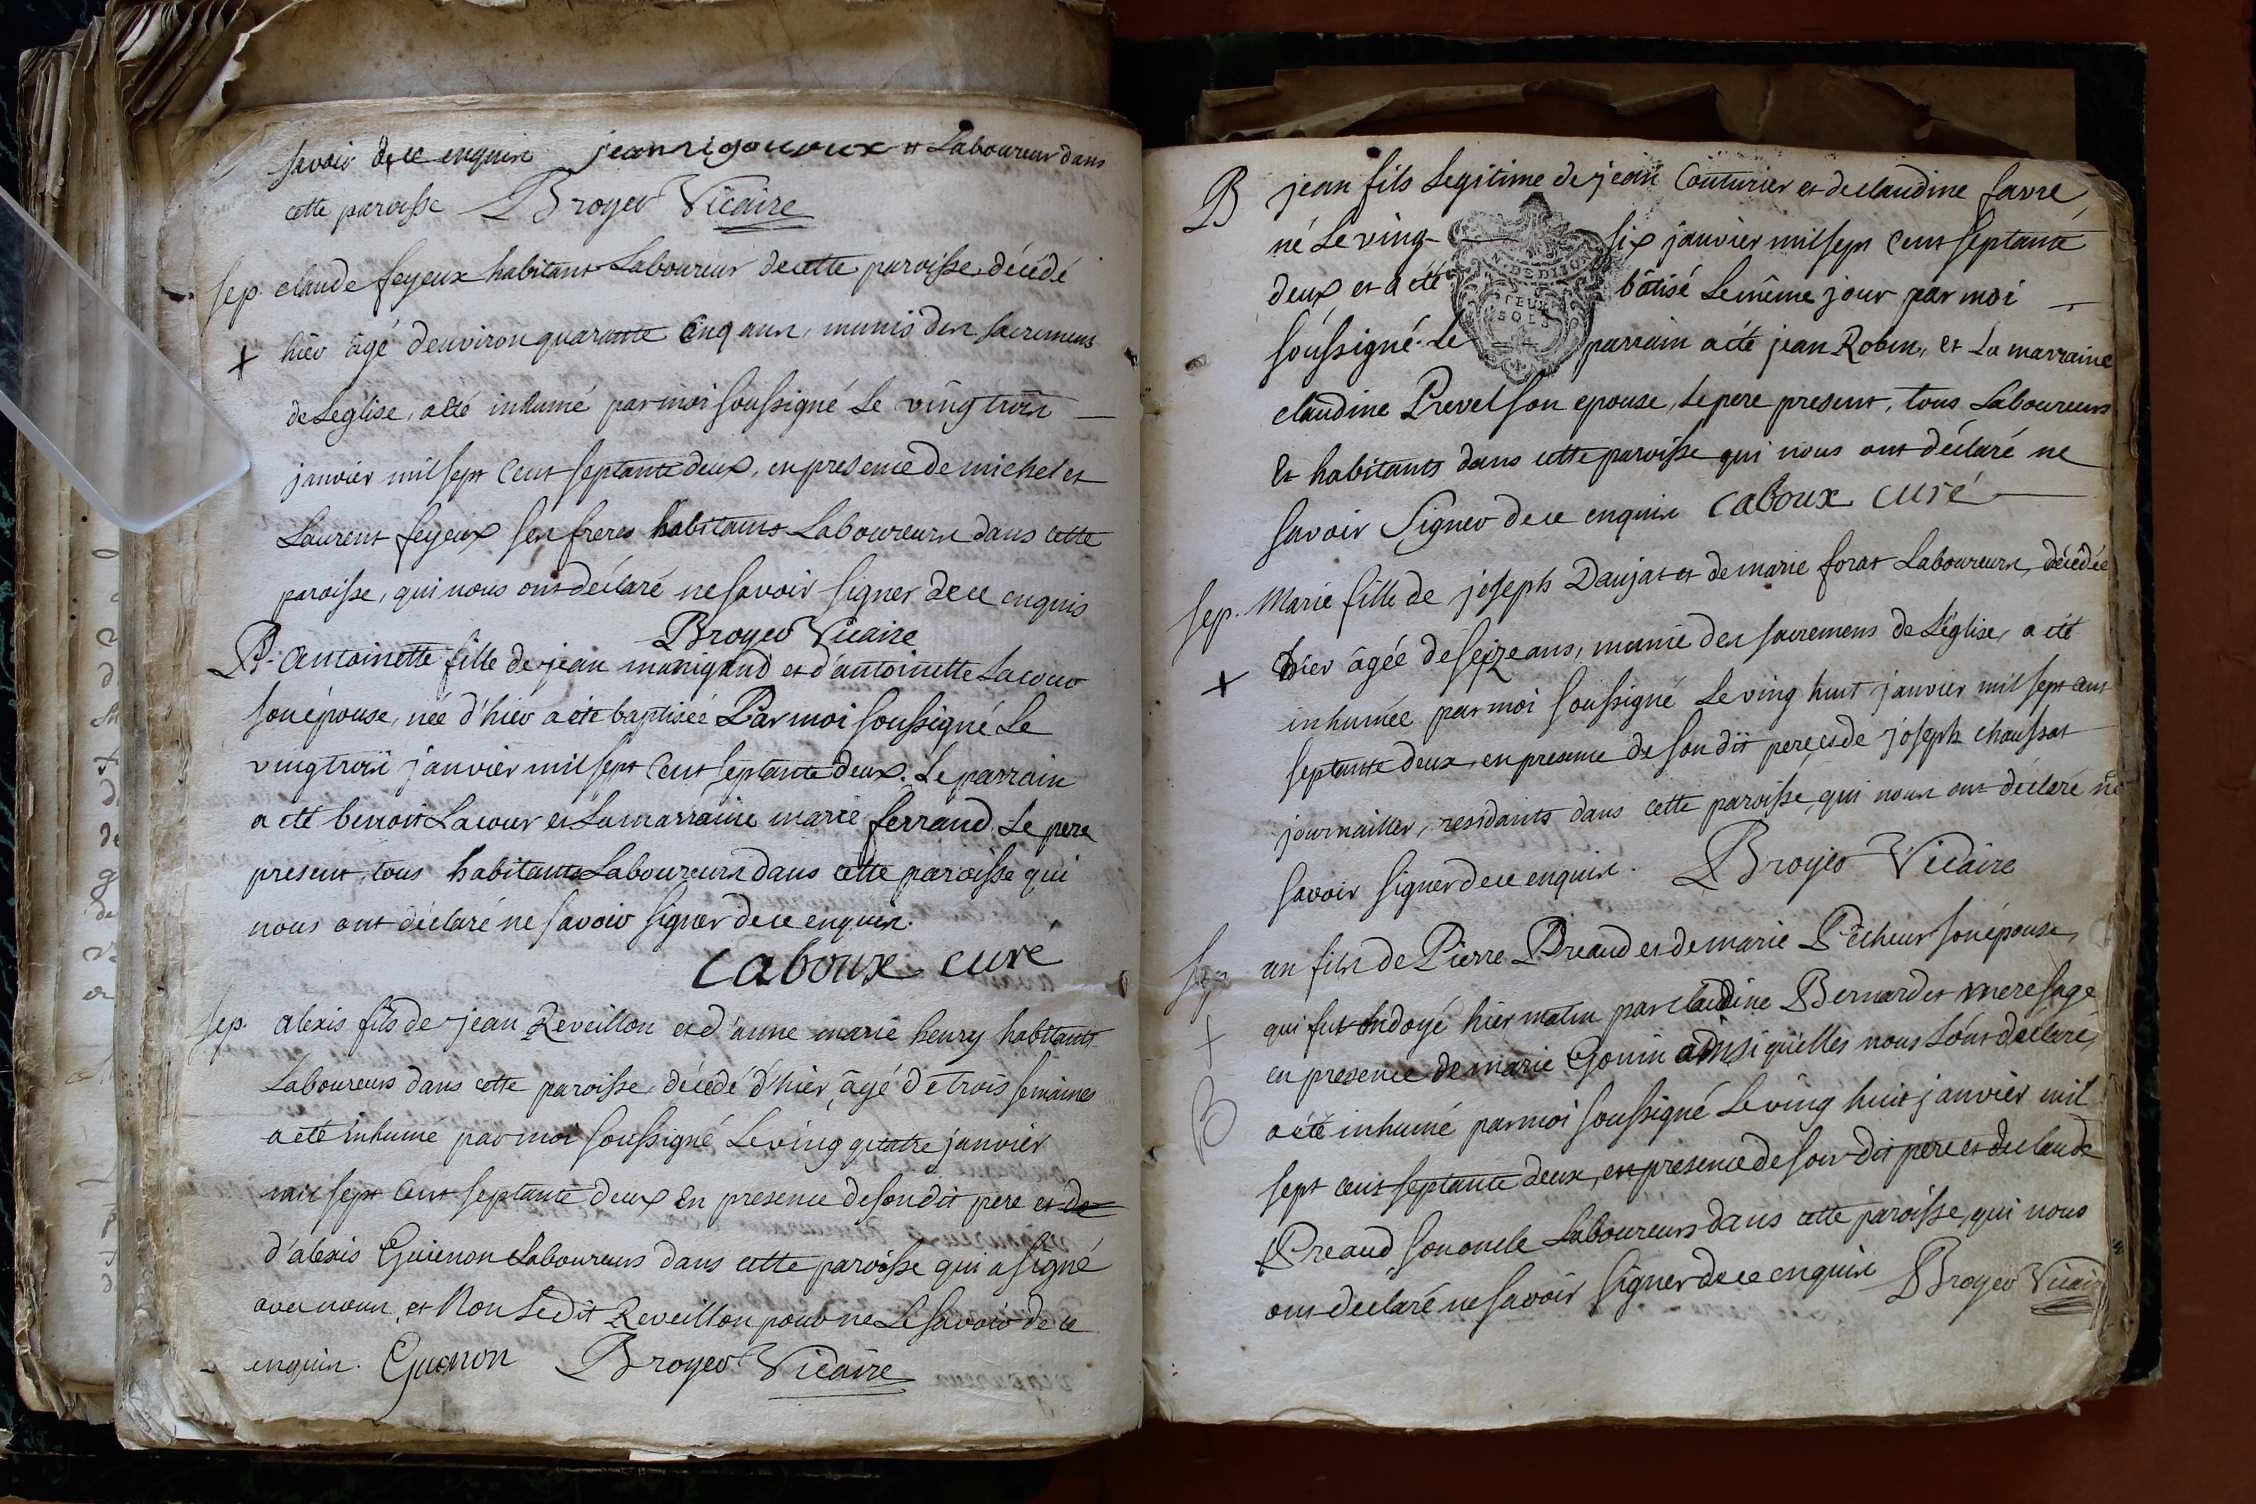 savoir de ce enquis jean rigouroux Laboureur dans
cette paroisse Broyer Vicaire
sep. claude feyeux habitant Laboureur de cette paroisse décédé
hier âgé d'environ quarante Cinq ans, munis des sacremens
de Leglise, a été inhumé par moi soussigné Le vingt trois
janvier mil sept cent septante deux, en presence de michel et
Laurent feyeux ses freres habitants Laboureurs dans cette
paroisse, qui nous ont déclaré ne savoir signer de ce enquis
Broyer Vicaire
B. antoinette fille de jean manigand et d'antoinette Lacour
son épouse, née d'hier a été baptisée Par moi soussigné Le
vingt trois janvier mil sept cent septante deux. Le parrain
a été benoit Lacour et La marraine marie ferrand Le pere
present, tous habitants Laboureurs dans cette paroisse qui
nous ont déclaré ne savoir signer de ce enquis.
Caboux curé
sep. alexis fils de jean Reveillon et d'anne marie henry habitants
Laboureurs dans cette paroisse, décédé d'hier, âgé de trois semaines
a été inhumé par moi soussigné Le ving quatre janvier
mil sept cent septante deux En presence de son dit pere et de
d'alexis Guienon Laboureurs dans cette paroisse qui a signé
avec nous, et Non Le dit Reveillon pour ne Le savoir de ce
enquis. Guenon Broyer Vicaire
B jean fils Legitime de jean Couturier et de claudine favre
né Le ving- six janvier mil sept cent septante
deux et a été bâtisé Le même jour par moi
soussigné. Le parrain a été jean Robin, et La marraine
claudine Prevel son epouse, Le pere present, tous Laboureurs
Et habitants dans cette paroisse qui nous ont déclaré ne
savoir Signer de ce enquis Caboux curé
sep. Marie fille de joseph Daujat et de marie forat Laboureurs, décédée
hier âgée de seize ans, munie des sacremens de Léglise, a été
inhumée par moi soussigné Le ving huit janvier mil sept cent
septante deux, en presence de son dit pere, et de joseph chaussat
journailler, residants dans cette paroisse, qui nous ont déclaré ne
savoir signer de ce enquis. Broyer Vicaire
sep un fils de Pierre Preaud et de marie Pêcheur son épouse,
qui fut ondoyé hier matin par claudine Bernardet mere sage
en presence de marie Gonin ainsi quelles nous L'ont declaré,
B a été inhumé par moi soussigné Le ving huit janvier mil
sept cent septante deux, en presence de son dit pere et de claude
Preaud son oncle Laboureurs dans cette paroisse, qui nous
ont déclaré ne savoir signer de ce enquis Broyer Vicaire